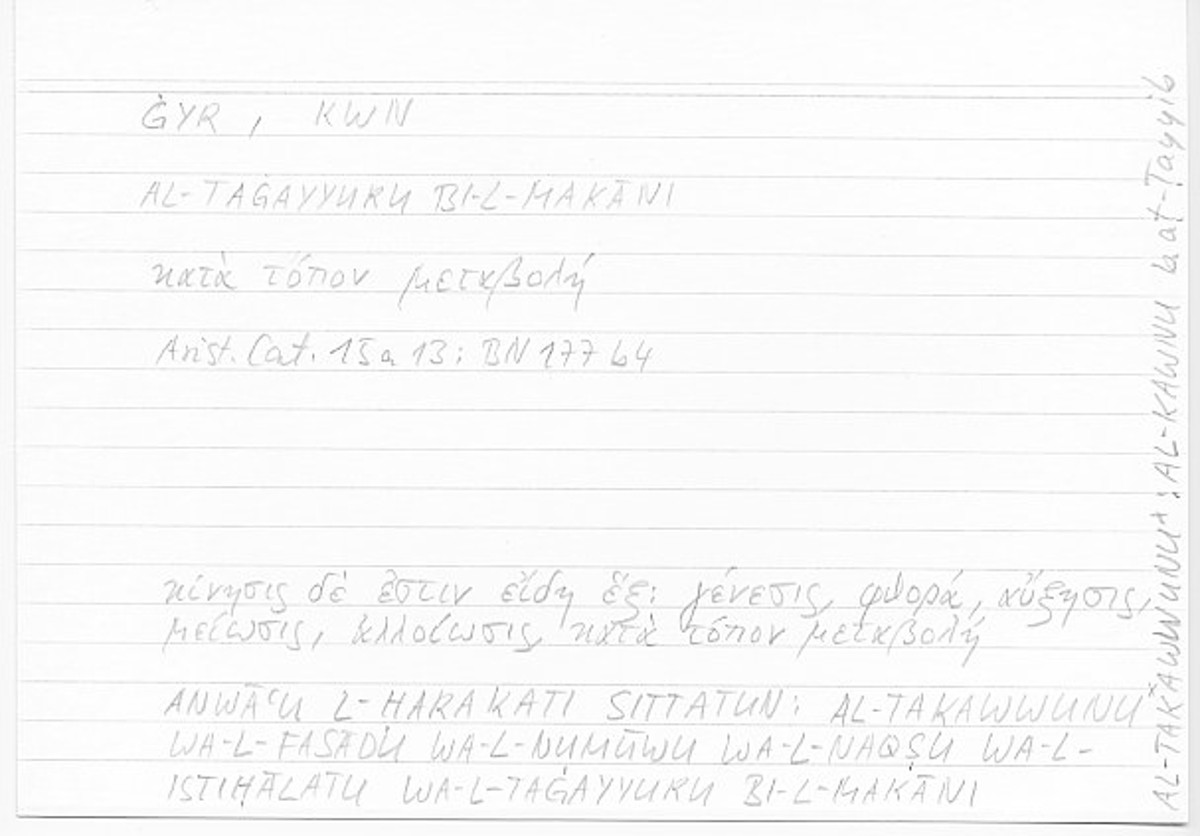 ĠYR, KWN
AL-TAĠAYYURU BI-L-MAKĀNI
κατὰ τόπον μεταβολή
Arist. Cat. 15a13: BN 177 b4
κίνησις δέ ἐστιν εἴδη ἕξ: γένεσις, φθορά, αὔξησις,
μείωσις, ἀλλοίωσις, κατὰ τόπον μεταβολή
ANWĀʿU L-ḤARAKATI SITTATUN: AL-TAKAWWUNU*
WA-L-FASĀDU WA-L-NUMŪWU WA-L-NAQṢU WA-L-
ISTIḤĀLATU WA-L-TAĠAYYURU BI-L-MAKĀNI
AL-TAKAWWUNU*: AL-KAWNU b. aṭ-Ṭayyib